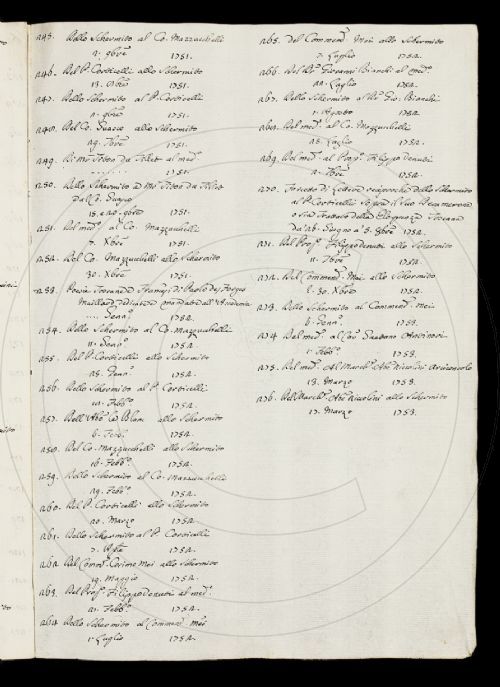 245. Dello Schermito al Co. Mazzuchelli
2. 9bre 1751.
246. Del P. Corticelli allo Schermito
13. 1751.
247. Dello Schermito al P. Corticelli
9bre 1751.
248. Del Co. Suazo allo Schermito
29. 9bre 1751.
249. Di Mo Titon du Tillet al med.
. . . . . . . 1751.
250. Dello Schermito a Mo Titon du Tillet
Dal Co. Suazo
1751.
251. Del med. al Co. Mazzuchelli
7. Xbre 1751.
252. Del Co. Mazzuchelli allo Schermito
30. Xbre 1751.
253. Poesia Toscana di Paolo des Forges
Maillard dedicatoria mandata all'Accademia
.... Genn.o 1752.
254. Dello Schermito al Co. Mazzuchelli
11. Genn.o 1752.
255. Del P. Corticelli allo Schermito
25. Genn.o 1752.
256. Dello Schermito al P. Corticelli
Febb.o 1752.
257. Dell'Ab.e le Blanc allo Schermito
6. Febb. 1752.
258. Del Co. Mazzuchelli allo Schermito
16. Febb.o 1752.
259. Dello Schermito al Co. Mazzuchelli
29. Febb.o 1752.
260. Del P. Corticelli allo Schermito
20. Marzo 1752.
261. Dello Schermito al P. Corticelli
7. 1752.
262. Del Comm. Cosimo Mei allo Schermito
19. Maggio 1752.
263. Del Prof. Filippo Venuti al med.
21. Febb.o 1752.
264. Dello Schermito al Commend. Mei
1. Luglio 1752.
265. Del Commend. Mei allo Schermito
7. Luglio 1752.
266. Del Giovanni Bianchi al med.
Luglio 1752.
267. Dello Schermito al Gio. Bianchi
1. Agosto 1752.
268. Del med. al Co. Mazzuchelli
25. Luglio 1752.
269. Del med. al Prop. Filippo Venuti
2. 7bre 1752.
270. Fascetto di Lettere reciproche dello Schermito
al P. Corticelli sopra il suo Decamerone
o sia Trattato della Eloquenza Toscana
Da' 26. Giugno a' 5. 9bre 1752.
271. Del Prop. Filippo Venuti allo Schermito
11. 7bre 1752.
272. Del Commend. Mei allo Schermito
30. Xbre 1752.
273. Dello Schermito al Commend. Mei
6. Genn.o 1753.
274. Del med. al Cav. Gaetano Antinori
1. Febb.o 1753.
275. Del med. Al March. Ab.e Niccolini
13. Marzo 1753.
276. Del March. Ab.e Niccolini allo Schermito
17. Marzo 1753.